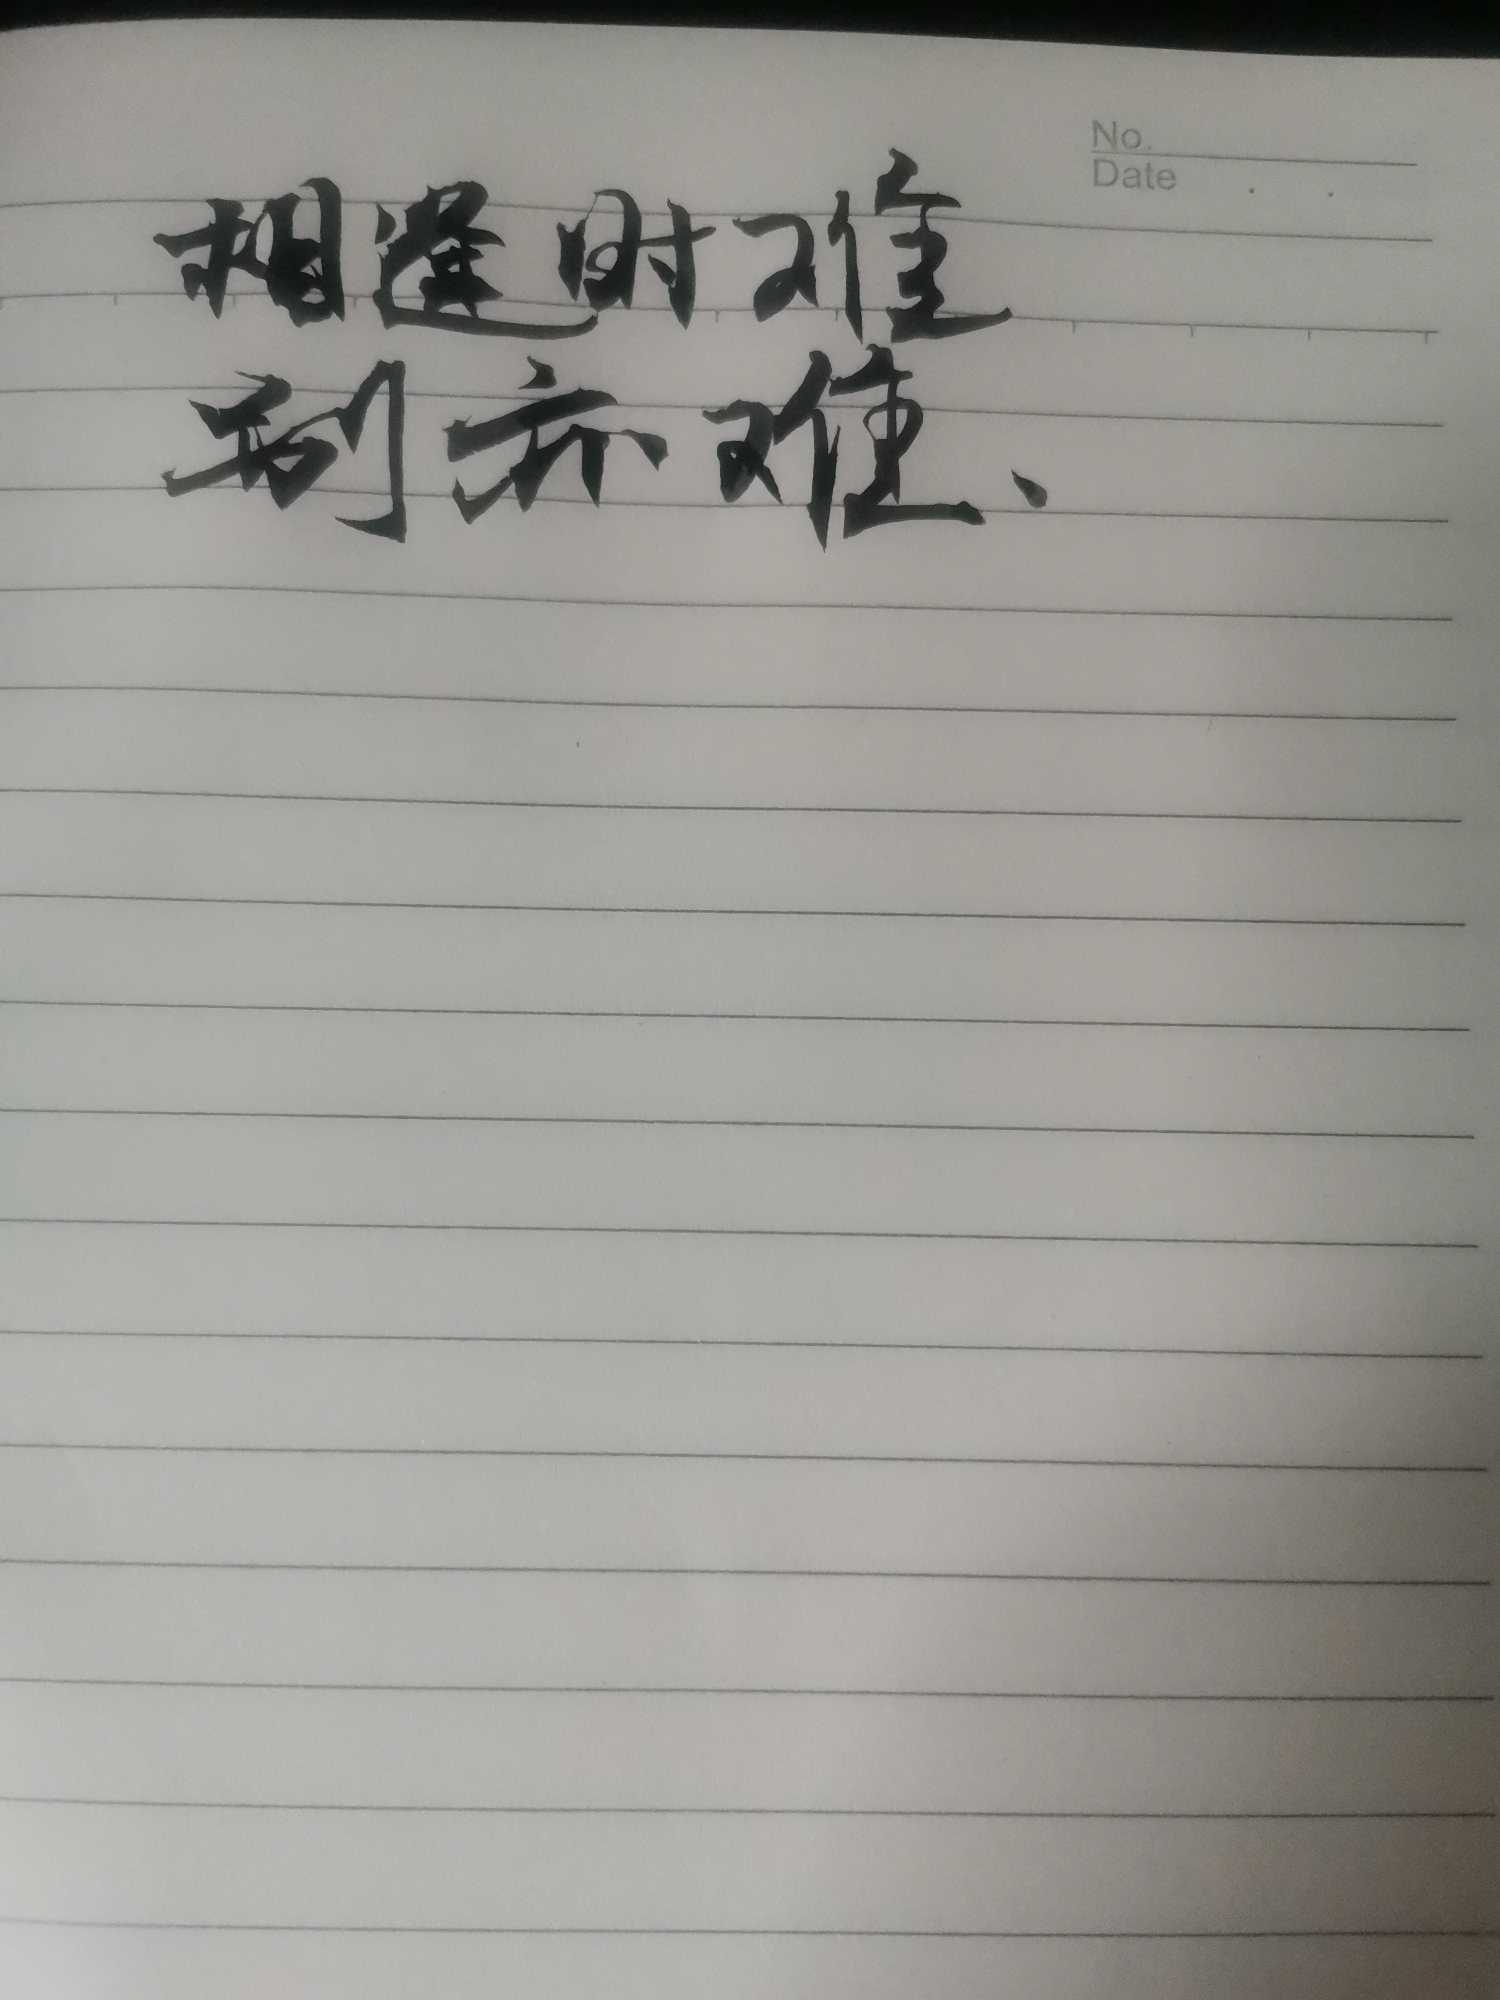 No.
Date
相遇时难
别亦难、